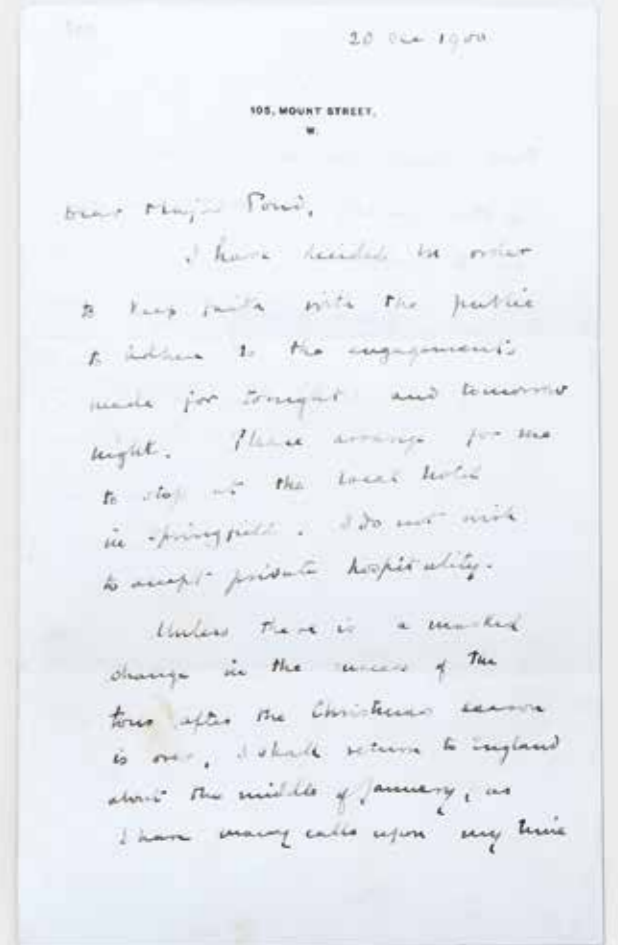 20 Dec 1900
105, MOUNT STREET,
W.
Dear Major Pond,
I have decided in order
to keep faith with the public
to adhere to the engagements
made for tonight and tomorrow
night. Please arrange for me
to stop at the local hotel
in Springfield. I do not wish
to accept private hospitality.
Unless there is a marked
change in the success of the
tour after the Christmas season
is over, I shall return to England
about the middle of January, as
I have many calls upon my time